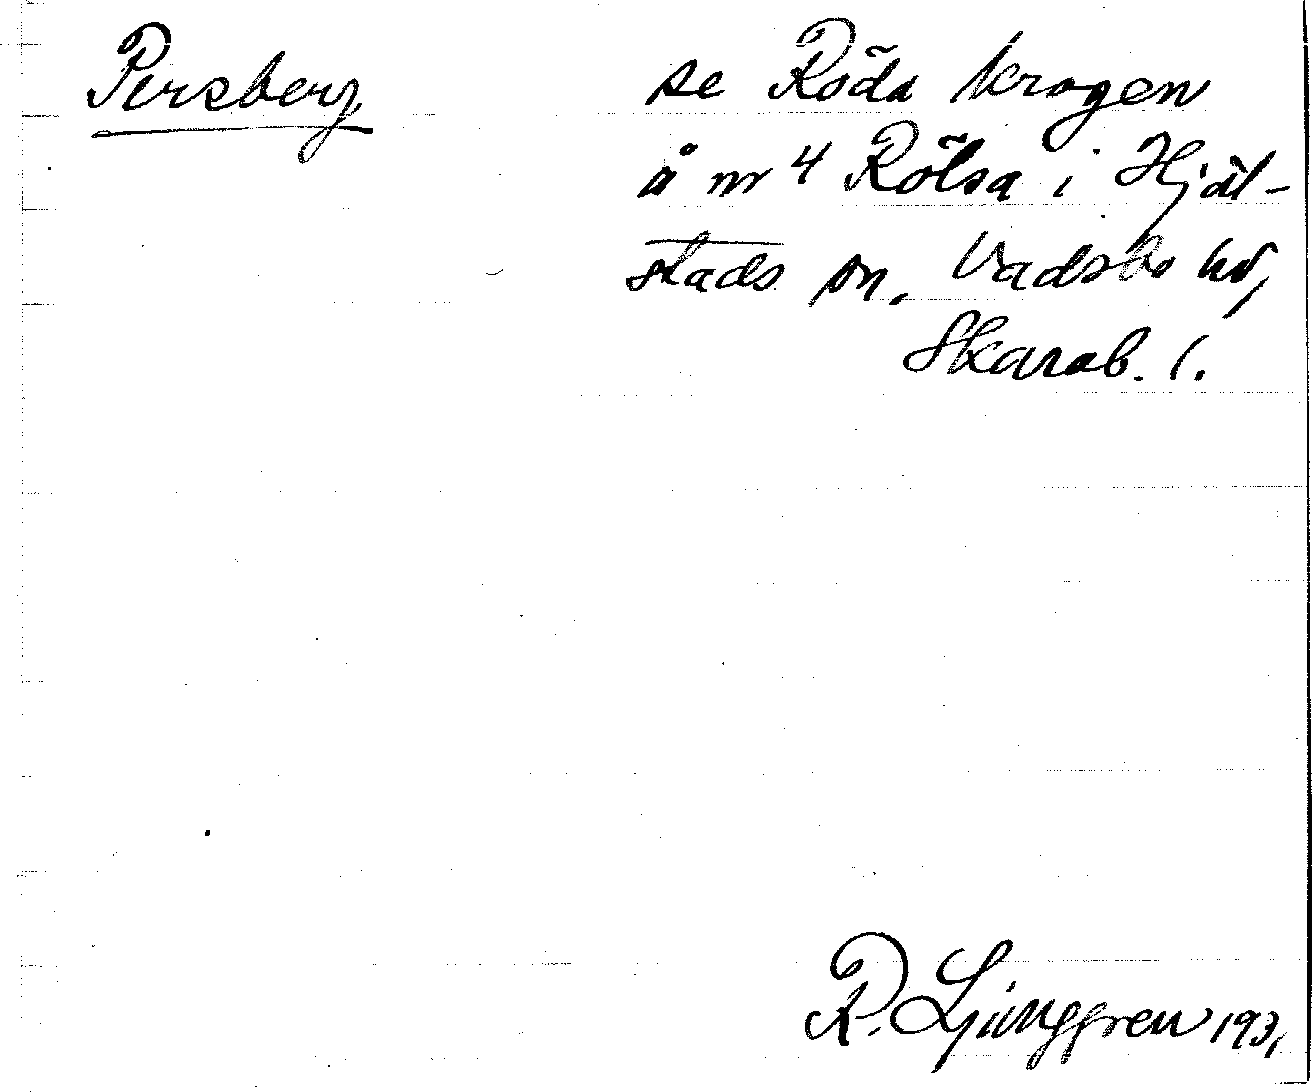 Persberg
se Röda krogen
å nr 4 Rölsa i Hjäl-
stads sn, Vadsbo hd,
Skarab. l.
R. Ljunggren 1931